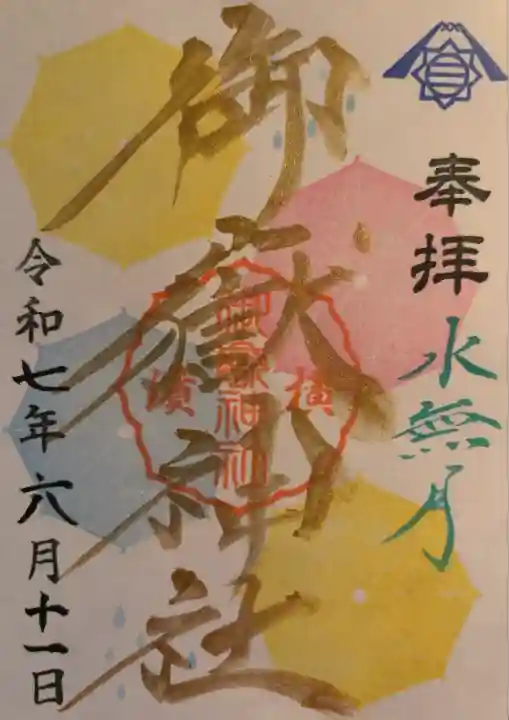 奉拝
水無月
御嶽神社
横濱
御嶽神社
令和七年六月十一日